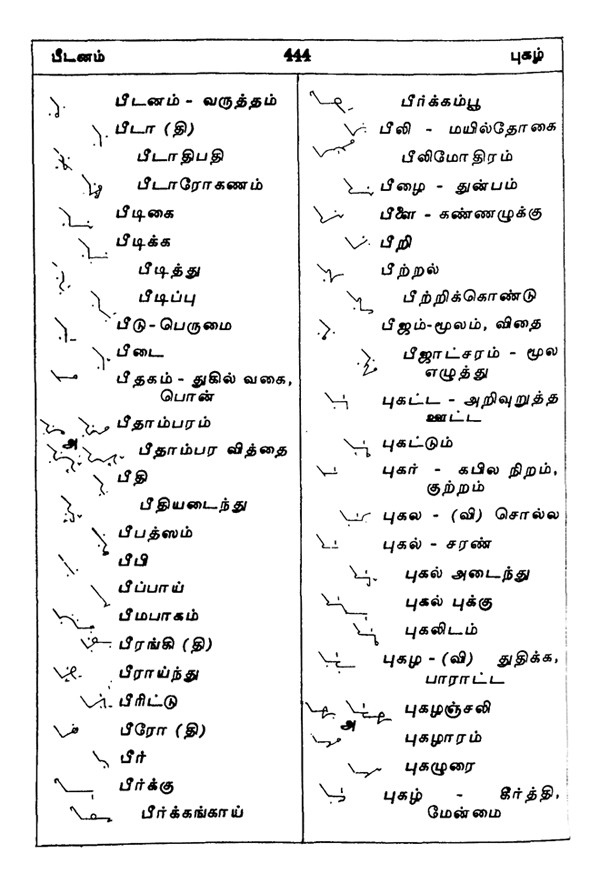 பீடனம் 444 புகழ்
பீடனம் - வருத்தம்
பீடா (தி)
பீடாதிபதி
பீடாரோகணம்
பீடிகை
பீடிக்க
பீடித்து
பீடிப்பு
பீடு-பெருமை
பீடை
பீதகம் - துகில் வகை,
பொன்
பீதாம்பரம்
அ
பீதாம்பர வித்தை
பீதி
பீதியடைந்து
பீபத்ஸம்
பீபி
பீப்பாய்
பீமபாகம்
பீரங்கி (தி)
பீராய்ந்து
பீரிட்டு
பீரோ (தி)
பீர்
பீர்க்கு
பீர்க்கங்காய்
பீர்க்கம்பூ
பீலி - மயில்தோகை
பீலிமோதிரம்
பீழை - துன்பம்
பீளை - கண்ணழுக்கு
பீறி
பீற்றல்
பீற்றிக்கொண்டு
பீஜம்-மூலம், விதை
பீஜாட்சரம் - மூல
எழுத்து
புகட்ட - அறிவுறுத்த
ஊட்ட
புகட்டும்
புகர் - கபில நிறம்,
குற்றம்
புகல - (வி) சொல்ல
புகல் - சரண்
புகல் அடைந்து
புகல் புக்கு
புகலிடம்
புகழ - (வி) துதிக்க,
பாராட்ட
புகழஞ்சலி
அ
புகழாரம்
புகழுரை
புகழ் - கீர்த்தி,
மேன்மை